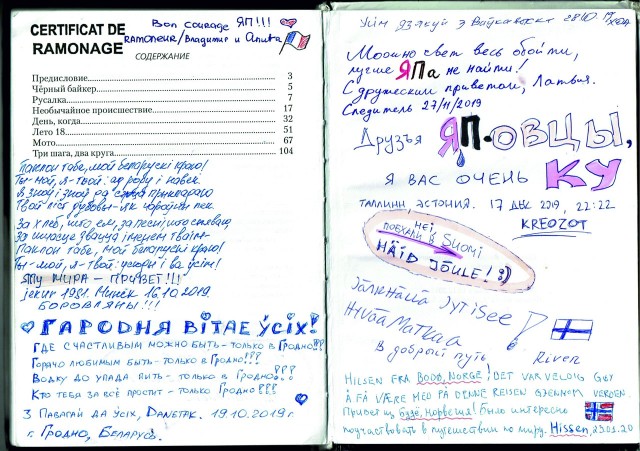 CERTIFICAT DE
RAMONAGE
Bon courage ЯП!!!
RAMONEUR/Владимир и Алива
СОДЕРЖАНИЕ
Предисловие 3
Чёрный байкер 5
Русалка 7
Необычайное происшествие 17
День, когда 32
Лето 18 51
Мото 67
Три шага, два круга 104
Паклон табе, мой беларускі краю!
Ты-мой, я-твой: ад роду і навек.
Я зноў і зноў да сэрца прыпадаю
За хлеб, што ем, за песні, што спяваю,
За шчасце звацца іменем тваім-
Паклон табе, мой беларускі краю!
Ты-мой, я-твой: усюды і ва ўсім!
ЯПу МИРА - ПРИВЕТ!!!
jekur 1981. Минск 16.10.2019.
БОРОВЛЯНЫ!!!
ГАРОДНЯ ВІТАЕ ЎСІХ!
Где счастливым можно быть - только в Гродно!!!
Горячо любимым быть - только в Гродно!!!
Водку до упада пить - только в Гродно!!!
Кто тебя за всё простит - только Гродно!!!
З павагай да ўсіх, DANETPK. 19.10.2019 г.
г. Гродно, Беларусь.
Усім дзякуй з Ваўкавыска 28.10.19
Можно свет весь обойти,
лучше ЯПа не найти!
С дружеским приветом, Латвия.
Следитель 27/11/2019
Друзья ЯП-ОВЦЫ,
я вас очень КУ
ТАЛЛИНН, ЭСТОНИЯ. 17 ДЕК 2019, 22:22
KREOZOT
HEI,
ПОЕХАЛИ В SUOMI
HÄID JÕULE! :)
HYVÄÄ MATKAA!
В добрый путь
River
HILSEN FRA BODØ, NORGE! DET VAR VELDIG GØY
Å FÅ VÆRE MED PÅ DENNE REISEN GJENNOM VERDEN.
Привет из Будё, Норвегия! Было интересно
поучаствовать в путешествии по миру. Hilsen, 29.01.20